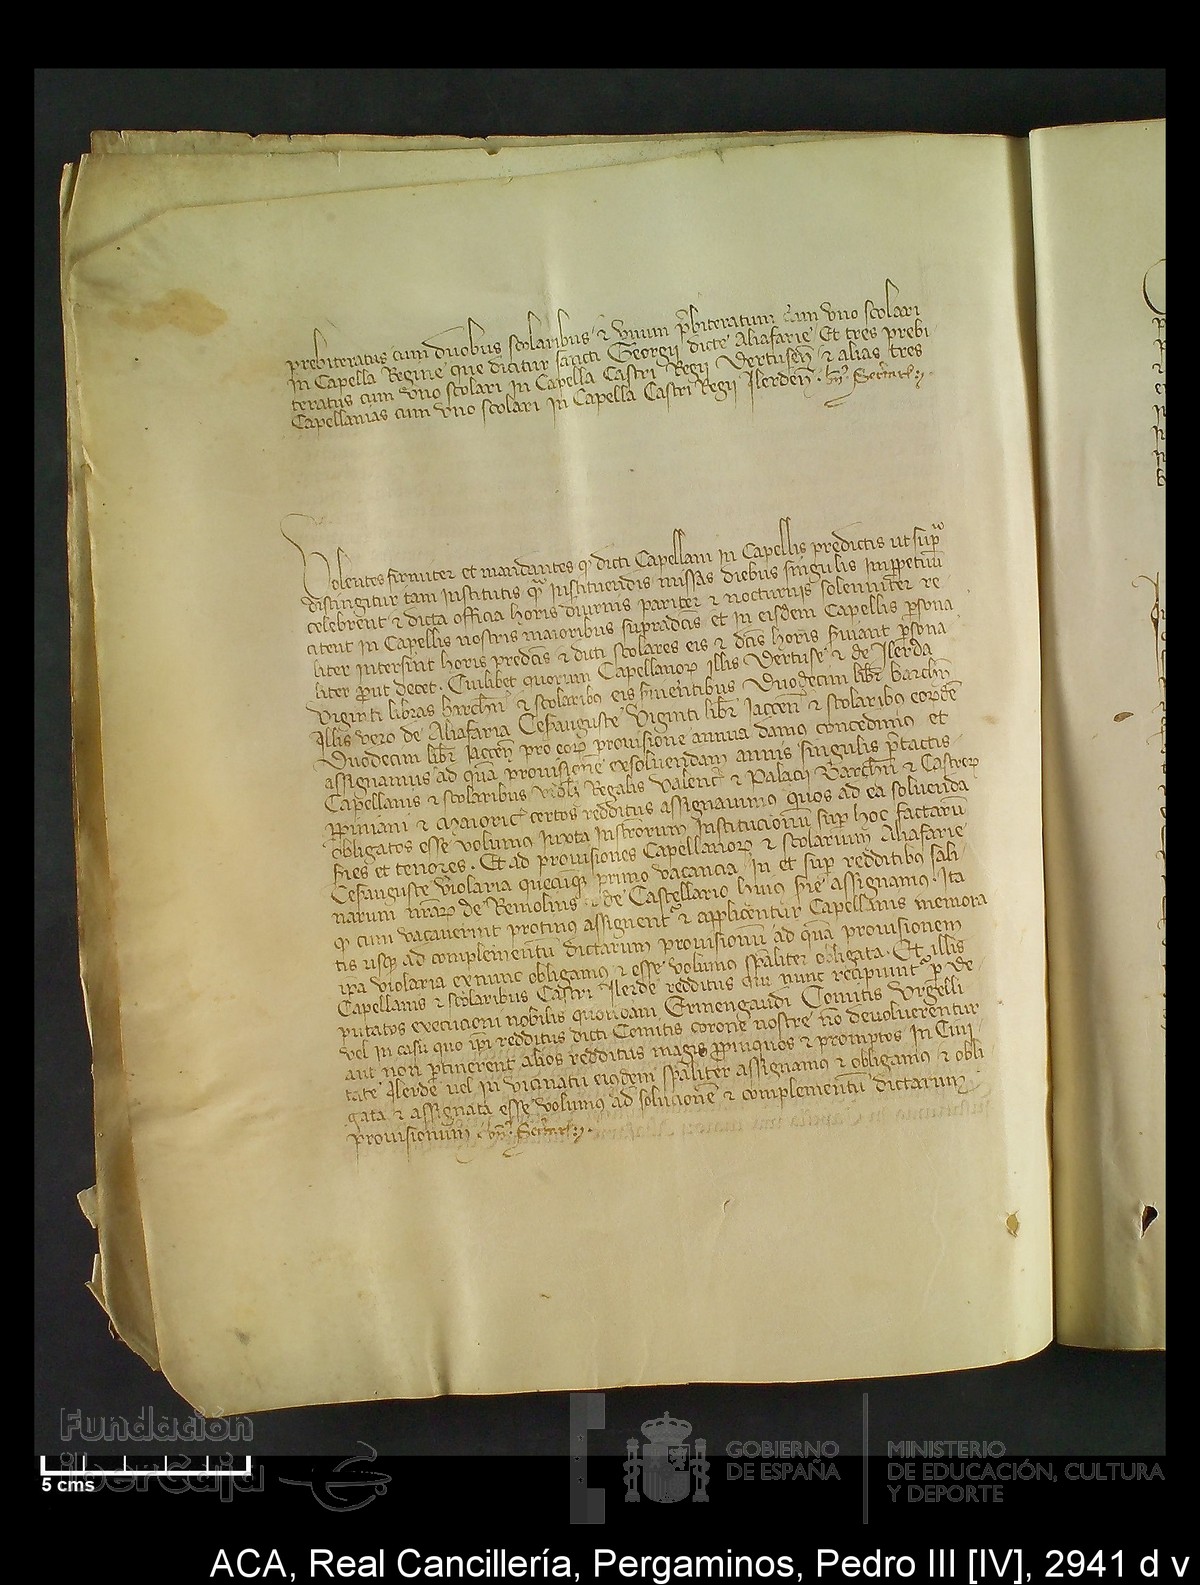 prebiteratus cum duobus scolaribus & unum p̄biteratum cum uno scolari
In Capella Regine que dicitur sancti Georgii dicte Aliafarie Et tres prebi
teratus cum uno scolari In Capella Castri Regii Dertuseñ & alias tres
Capellanias cum uno scolari In Capella Castri Regii Ilerdeñ.
Volentes firmiter et mandantes qᵈ dicti Capellani In Capellis predictis ut supᵃ
distingitur tam Institutis qᵃ Instituendis missas diebus singulis Imppetuū
celebrent & dicta officia horis diurnis pariter & nocturnis solenniter re
citent In Capellis nostris maioribus supradc̄is et in eisdem Capellis psona
liter intersint horis predc̄is & dicti scolares eis & dc̄is horis s̄uiant psona
liter put decet. Cuilibet quorum Capellanoꝝ Illis Dertuse & de Ilerda
Viginti libras barchñ & scolaribꝯ eis s̄uientibus Duodecim libr̄ barchñ
Illis vero de Aliafaria Cesarauguste Viginti libr̄ Iacceñ & scolaribꝯ eoꝝdē
Duodecim libr̄ Iacceñ pro eoꝝ provisione annua damꝯ concedimꝯ et
assignamus ad quā provisionē exsoluendam annis singulis p̄tactis
Capellanis & scolaribus Regalis Valenc̄ & Palacii Barchñ & Castroꝝ
Ppiniani & Maioric̄ certos redditus assignauimꝯ quos ad ea soluenda
obligatos esse volumꝯ Iuxta Instr̄orum Institucionū sup hoc factarū
s̄ies et tenores. Et ad provisiones Capellanoꝝ & scolarium Aliafarie
Cesarauguste violaria quecūqꝫ primo vacancia In et sup redditibꝯ sali
narum nr̄aꝝ de Remolins & de Castellario huiꝯ s̄ie assignamꝯ. Ita
qᵈ cum vacauerint protinꝯ assignent̄ & applicentur Capellanis memora
tis usqꝫ ad complementū dictarum provisionū ad quā provisionem
ipa violaria exnunc obligamꝯ & esse volumꝯ spāliter obligata. Et illis
Capellanis & scolaribus Castri Ilerde redditus qui nunc recipiunt̄ p de
putatos execucioni nobilis quondam Ermengaudi Comitis Urgelli
vel In casu quo ipi redditus dicti Comitis corone nostre nō deuoluerentur
aut non ptinerent alios redditus magis ppinquos & promptos In Ciui
tate Ilerde vel In vicinatu eiusdem spāliter assignamꝯ & obligamꝯ & obli
gata & assignata esse volumꝯ ad solucionē & complementū dictarum
provisionum.
5 cms
Fundación
iberCaja
GOBIERNO
DE ESPAÑA
MINISTERIO
DE EDUCACIÓN, CULTURA
Y DEPORTE
ACA, Real Cancillería, Pergaminos, Pedro III [IV], 2941 d v